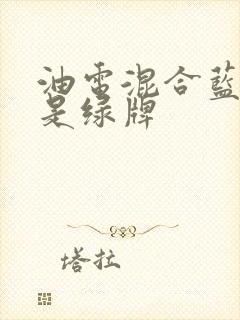 油電混合藍
是绿牌
塔拉